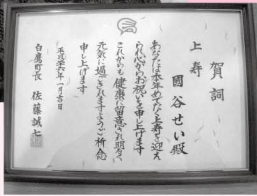 賀詞
上寿
國谷せい殿
あなたは本年めでたく上寿を迎え
られ心からお祝いを申し上げます
これからも健康に留意され明るく
元気に過ごされますようご祈念
申し上げます
平成十六年一月吉日
白鷹町長 佐藤誠七